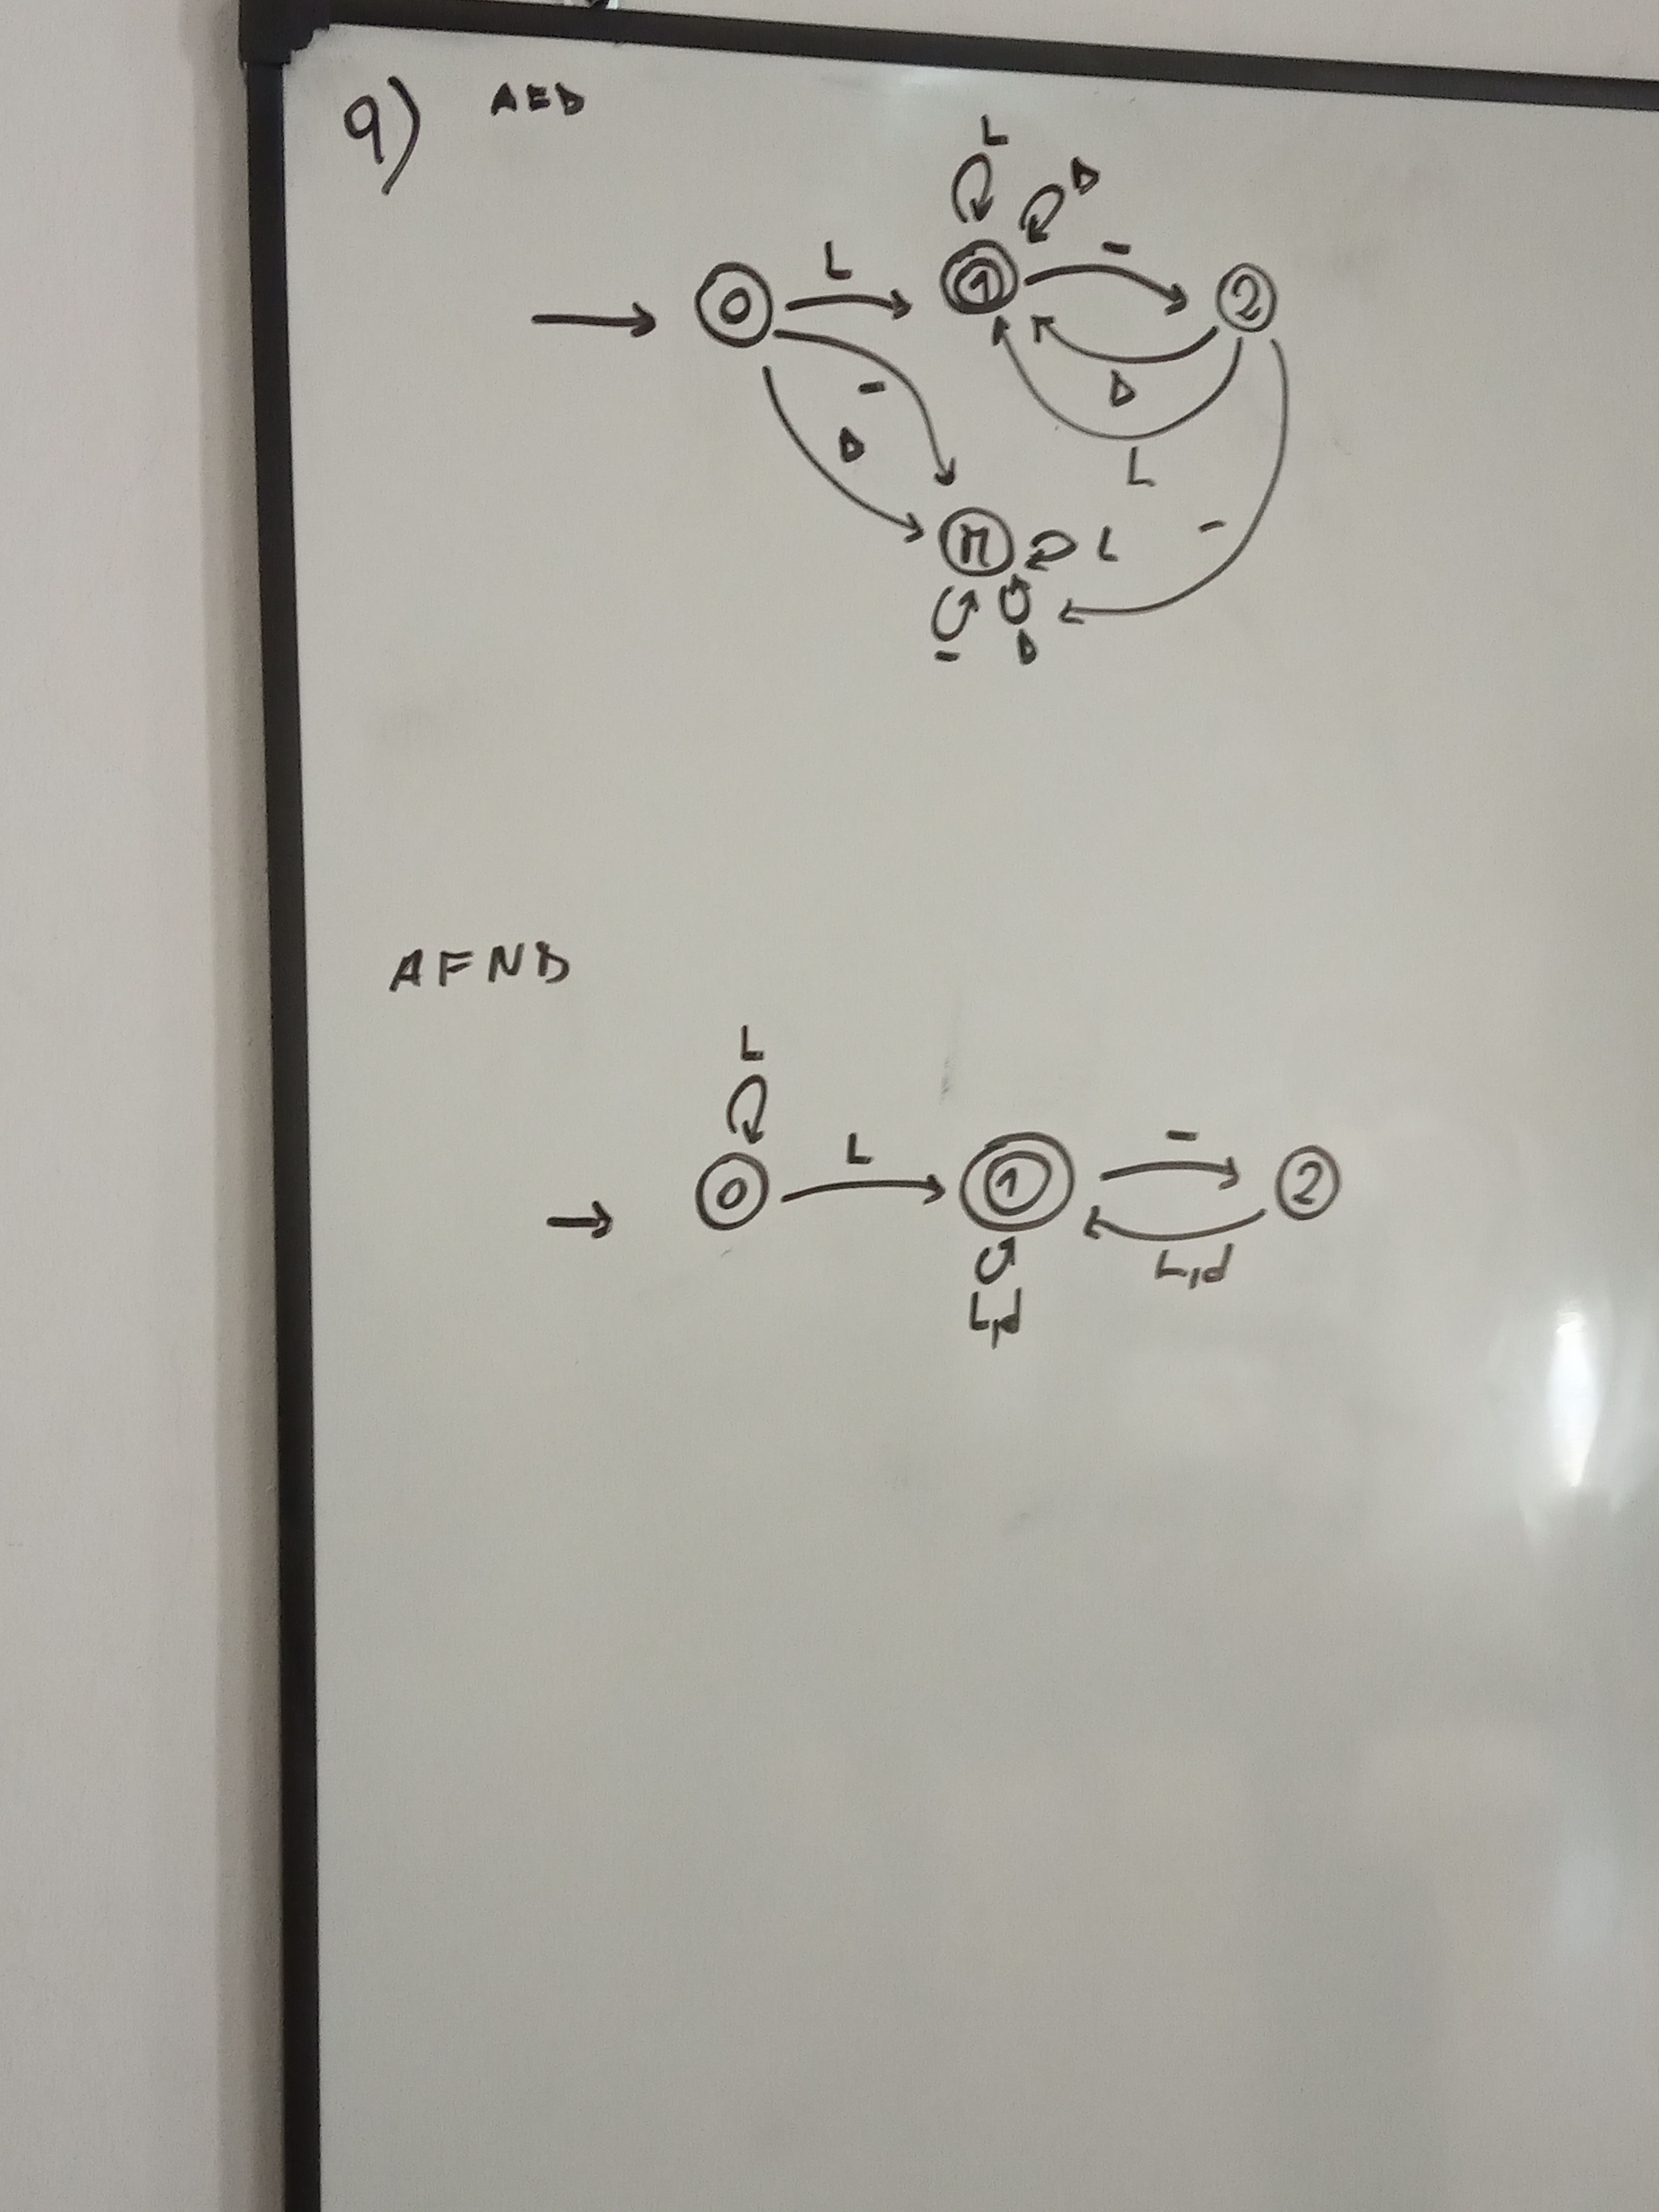 9) AFD
L
D
L
-
0
1
2
-
D
D
L
M
L
-
-
D
AFND
L
L
-
0
1
2
L,d
L,d